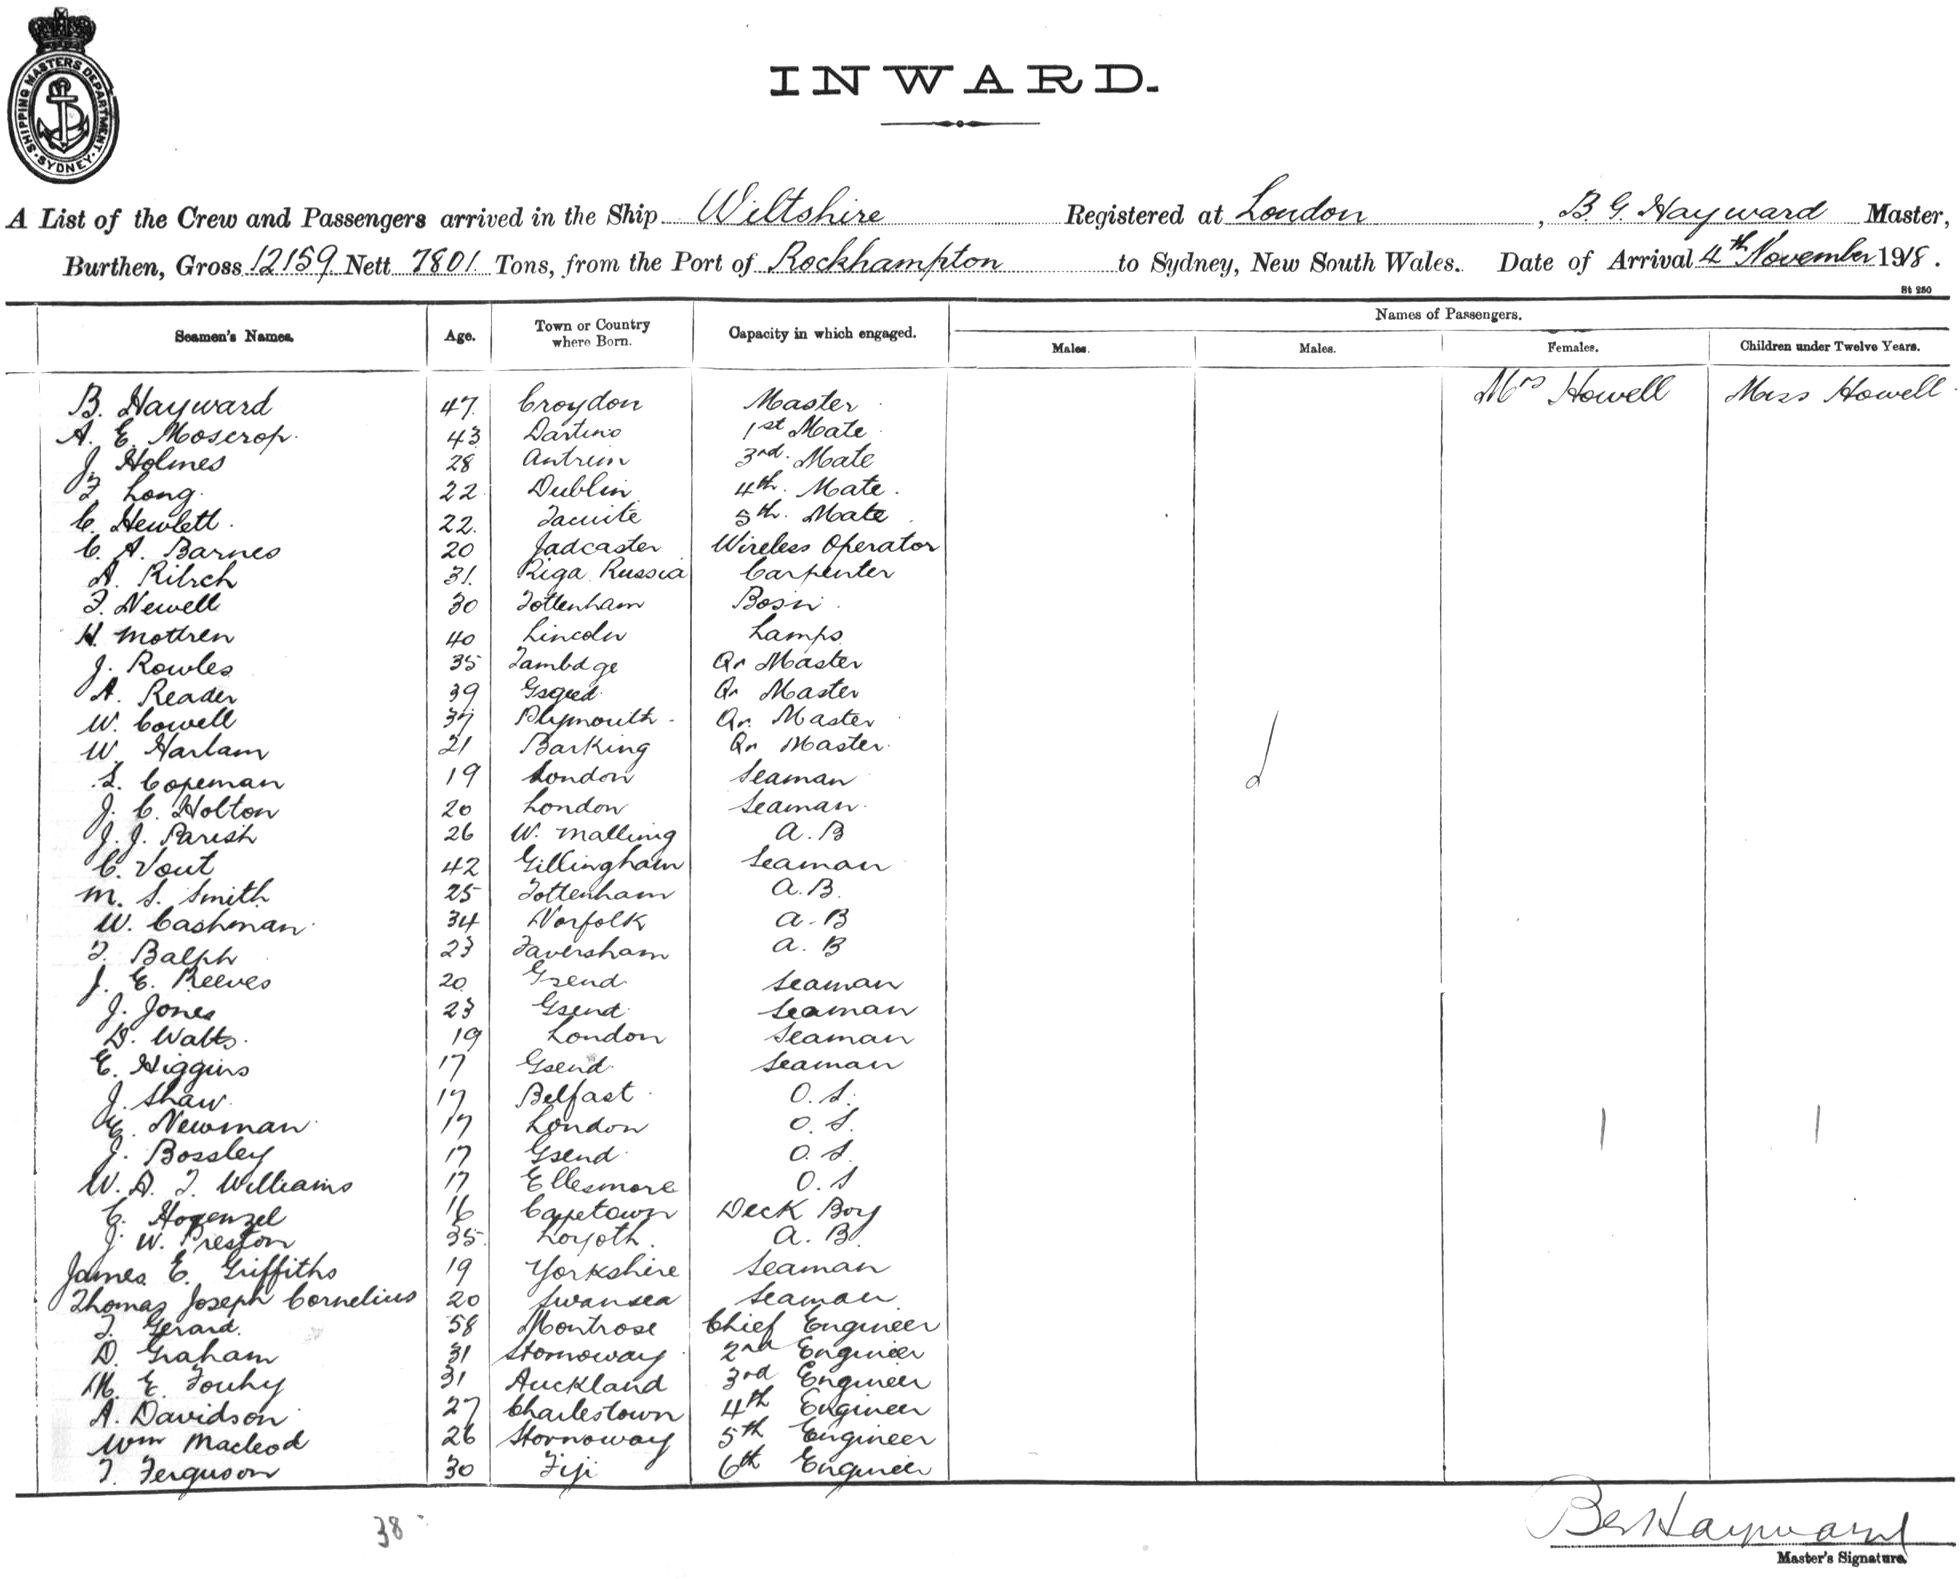 SHIPPING MASTERS DEPARTMENT · SYDNEY ·
INWARD.
A List of the Crew and Passengers arrived in the Ship Wiltshire Registered at London, B. G. Hayward Master,
Burthen, Gross 12159 Nett 7801 Tons, from the Port of Rockhampton to Sydney, New South Wales. Date of Arrival 4th November 1918.
St 250
Seamen's Names. Age. Town or Country where Born. Capacity in which engaged. Names of Passengers.
Males. Males. Females. Children under Twelve Years.
Mrs Howell Miss Howell
B. Hayward 47 Croydon Master
A. E. Moscrop 43 1st Mate
J. Holmes 28 Antrim 3rd Mate
F. Long 22 Dublin 4th Mate
C. Hewlett 22 5th Mate
C. A. Barnes 20 Tadcaster Wireless Operator
A. 31 Riga Russia Carpenter
F. Newell 30 Tottenham Bosn
H. Mottren 40 Lincoln Lamps
J. Rowles 35 Tambdge Qr Master
A. Reader 39 Qr Master
W. Cowell 37 Plymouth Qr Master
W. Harlam 21 Barking Qr Master
S. Copeman 19 London Seaman
J. C. Holton 20 London Seaman
J. J. Parish 26 W. Malling A.B
C. Vout 42 Gillingham Seaman
M. S. Smith 25 Tottenham A.B.
W. Cashman 34 Norfolk A.B
T. Balph 23 Faversham A.B
J. E. Reeves 20 Gsend Seaman
J. Jones 23 Gsend Seaman
D. Watts 19 London Seaman
E. Higgins 17 Gsend Seaman
J. Shaw 17 Belfast O.S.
E. Newman 17 London O.S.
J. Bossley 17 Gsend O.S
W. A. T. Williams 17 Ellesmore O.S
C. Hogenzel 16 Capetown Deck Boy
J. W. Preston 35 A.B
James E. Griffiths 19 Yorkshire Seaman
Thomas Joseph Cornelius 20 Swansea Seaman
T. Gerard 58 Montrose Chief Engineer
D. Graham 31 Stornoway 2nd Engineer
M. E. Touhy 31 Auckland 3rd Engineer
A. Davidson 27 Charlestown 4th Engineer
Wm Macleod 26 Stornoway 5th Engineer
T. Ferguson 30 Fiji 6th Engineer
1 1
38
Hayward
Master's Signature